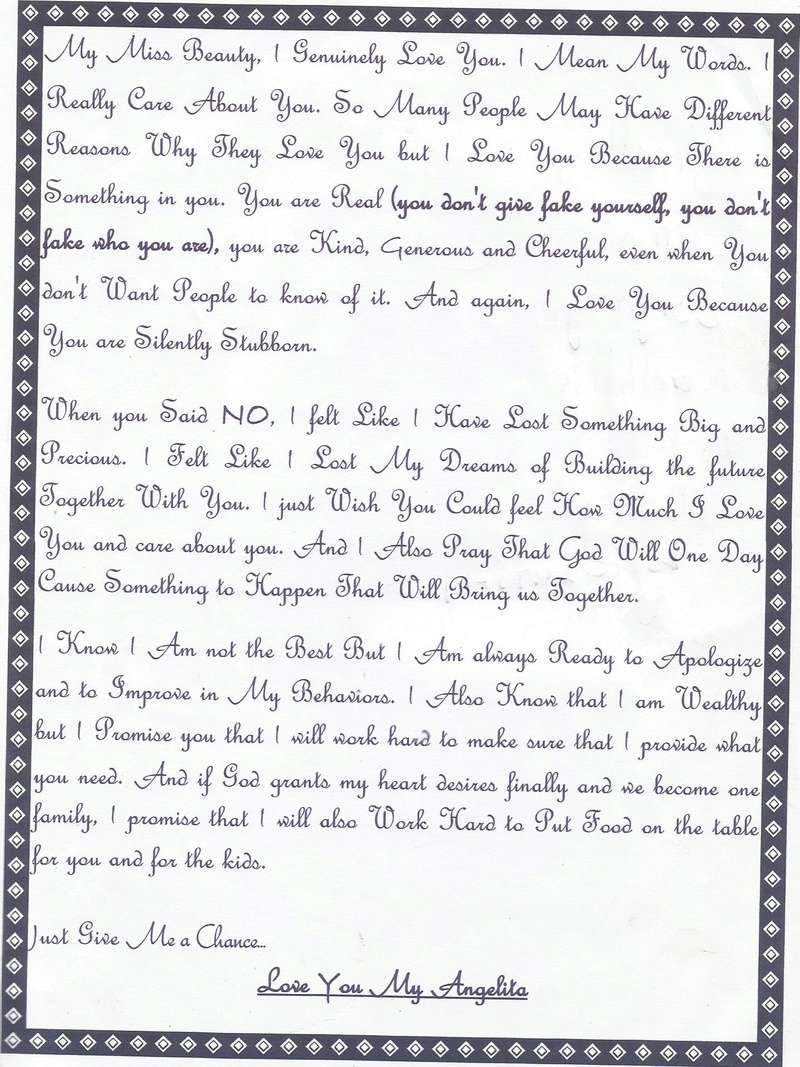 My Miss Beauty, I Genuinely Love You. I Mean My Words. I
Really Care About You. So Many People May Have Different
Reasons Why They Love You but I Love You Because There is
Something in you. You are Real (you don't give fake yourself, you don't
fake who you are), you are Kind, Generous and Cheerful, even when You
don't Want People to know of it. And again, I Love You Because
You are Silently Stubborn.
When you Said NO, I felt Like I Have Lost Something Big and
Precious. I Felt Like I Lost My Dreams of Building the future
Together With You. I just Wish You Could feel How Much I Love
You and care about you. And I Also Pray That God Will One Day
Cause Something to Happen That Will Bring us Together.
I Know I Am not the Best But I Am always Ready to Apologize
and to Improve in My Behaviors. I Also Know that I am Wealthy
but I Promise you that I will work hard to make sure that I provide what
you need. And if God grants my heart desires finally and we become one
family, I promise that I will also Work Hard to Put Food on the table
for you and for the kids.
Just Give Me a Chance...
Love You My Angelita